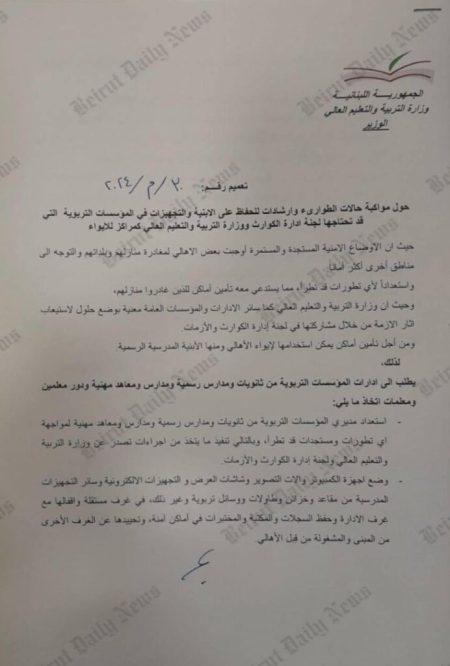 الجمهورية اللبنانية
وزارة التربية والتعليم العالي
الوزير
تعميم رقم: ٣٠/م/٢٠٢٤
حول مواكبة حالات الطوارىء وارشادات للحفاظ على الابنية والتجهيزات في المؤسسات التربوية التي
قد تحتاجها لجنة ادارة الكوارث ووزارة التربية والتعليم العالي كمراكز للايواء
حيث ان الاوضاع الامنية المستجدة والمستمرة أوجبت بعض الاهالي لمغادرة منازلهم وبلداتهم والتوجه الى
مناطق أخرى أكثر أماناً.
واستعداداً لأي تطورات قد تطرأ، مما يستدعي معه تأمين أماكن للذين غادروا منازلهم،
وحيث ان وزارة التربية والتعليم العالي كما سائر الادارات والمؤسسات العامة معنية بوضع حلول لاستيعاب
اثار الازمة من خلال مشاركتها في لجنة إدارة الكوارث والأزمات.
ومن أجل تأمين أماكن يمكن استخدامها لإيواء الأهالي ومنها الأبنية المدرسية الرسمية
لذلك،
يطلب الى ادارات المؤسسات التربوية من ثانويات ومدارس رسمية ومدارس ومعاهد مهنية ودور معلمين
ومعلمات اتخاذ ما يلي:
- استعداد مديري المؤسسات التربوية من ثانويات ومدارس رسمية ومدارس ومعاهد مهنية لمواجهة
اي تطورات ومستجدات قد تطرأ، وبالتالي تنفيذ ما يتخذ من اجراءات تصدر عن وزارة التربية
والتعليم العالي ولجنة إدارة الكوارث والأزمات.
- وضع اجهزة الكمبيوتر وآلات التصوير وشاشات العرض و التجهيزات الالكترونية وسائر التجهيزات
المدرسية من مقاعد وخزائن وطاولات ووسائل تربوية وغير ذلك، في غرف مستقلة واقفالها مع
غرف الادارة وحفظ السجلات والمكتبة والمختبرات في أماكن آمنة، وتحييدها عن الغرف الأخرى
من المبنى والمشغولة من قبل الأهالي.
Beirut Daily News
Beirut Daily News
Beirut Daily News
Beirut Daily News
Beirut Daily News
Beirut Daily News